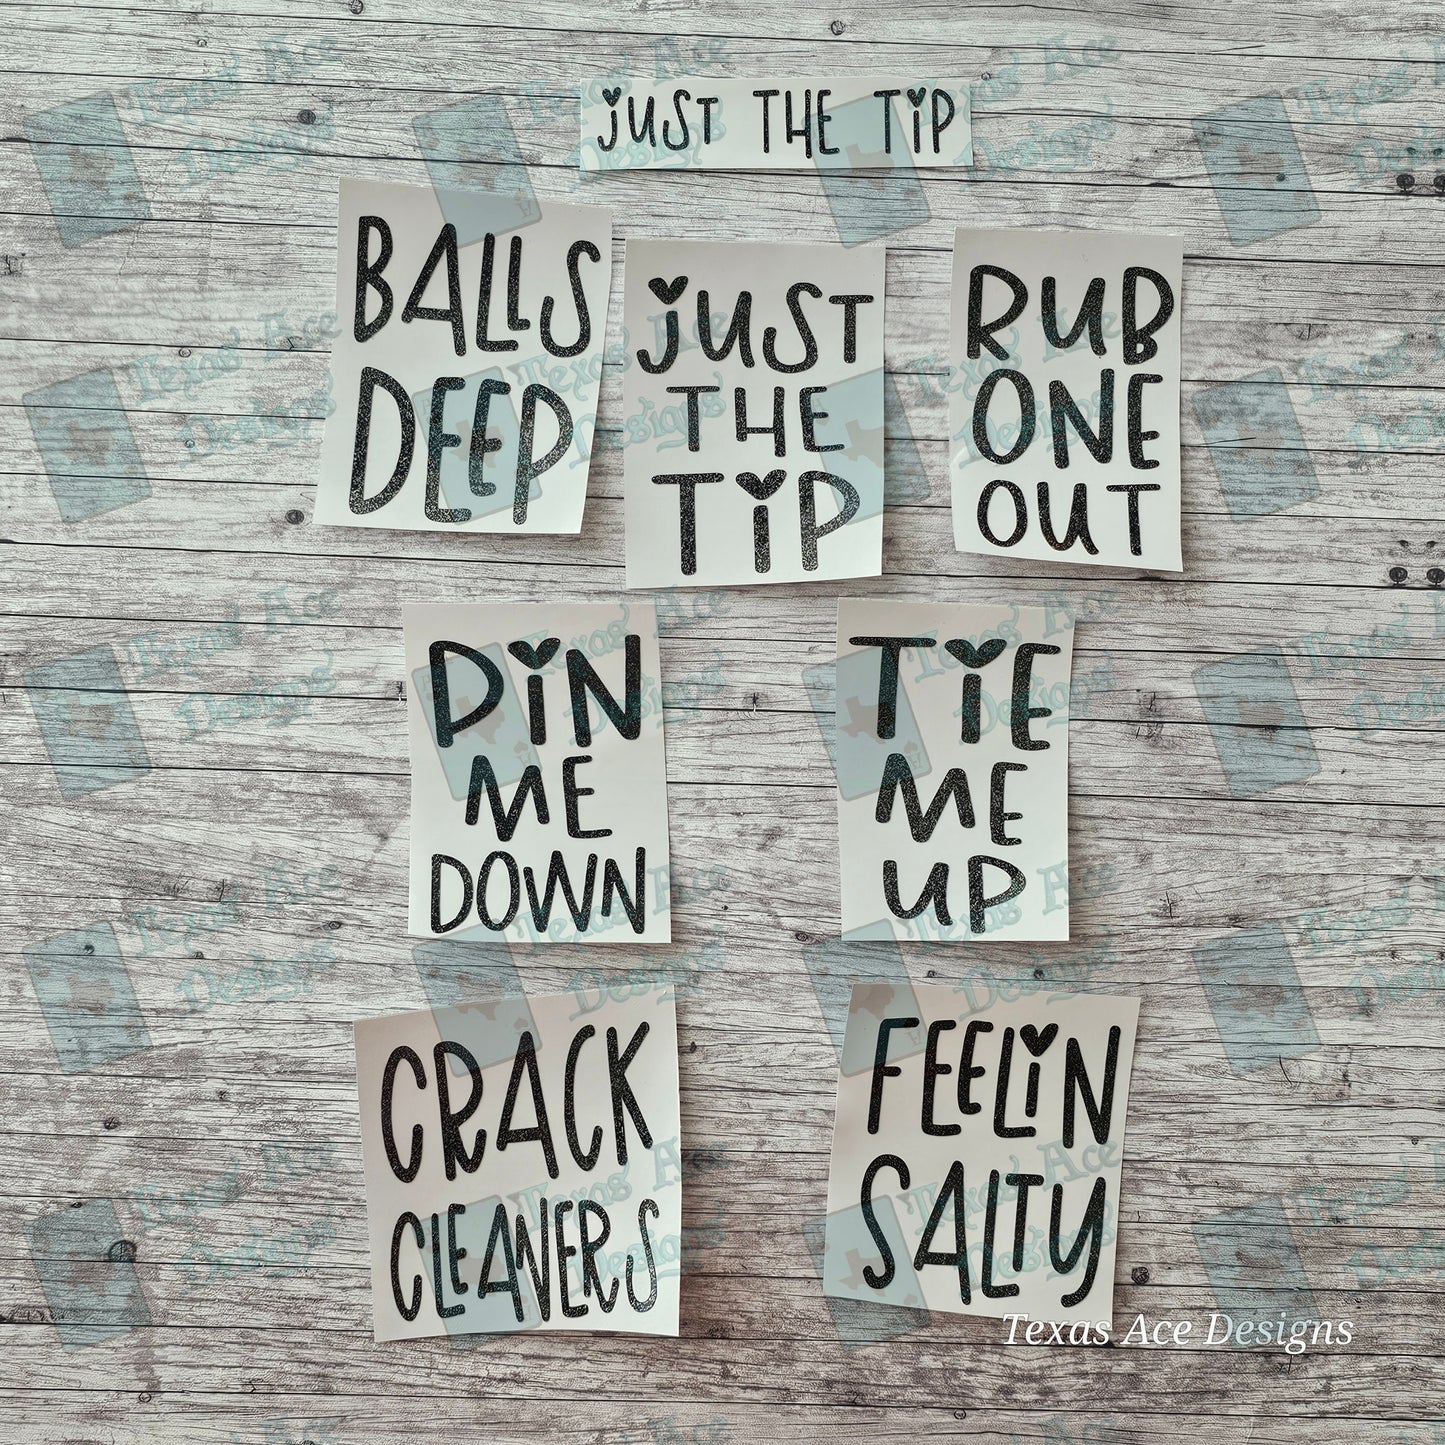 JUST THE TIP
BALLS
DEEP
JUST
THE
TIP
RUB
ONE
OUT
PIN
ME
DOWN
TIE
ME
UP
CRACK
CLEANERS
FEELIN
SALTY
Texas Ace Designs